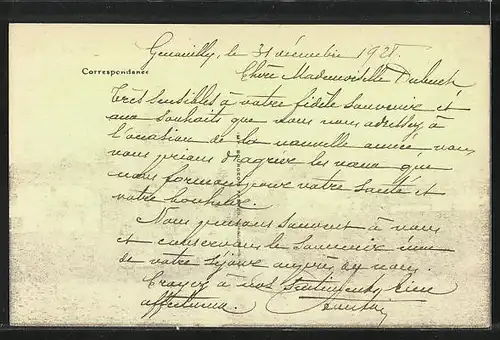 Genouilly, le 31 décembre 1928.
Correspondance
Chère Mademoiselle
Très sensibles à votre fidèle souvenir et
aux souhaits que vous nous adressez à
l'occasion de la nouvelle année, nous
vous prions d'agréer les vœux que
nous formons pour votre santé et
votre bonheur.
Nous pensons souvent à vous
et conservons le souvenir ému
de votre séjour auprès de nous.
Croyez à nos sentiments bien
affectueux.